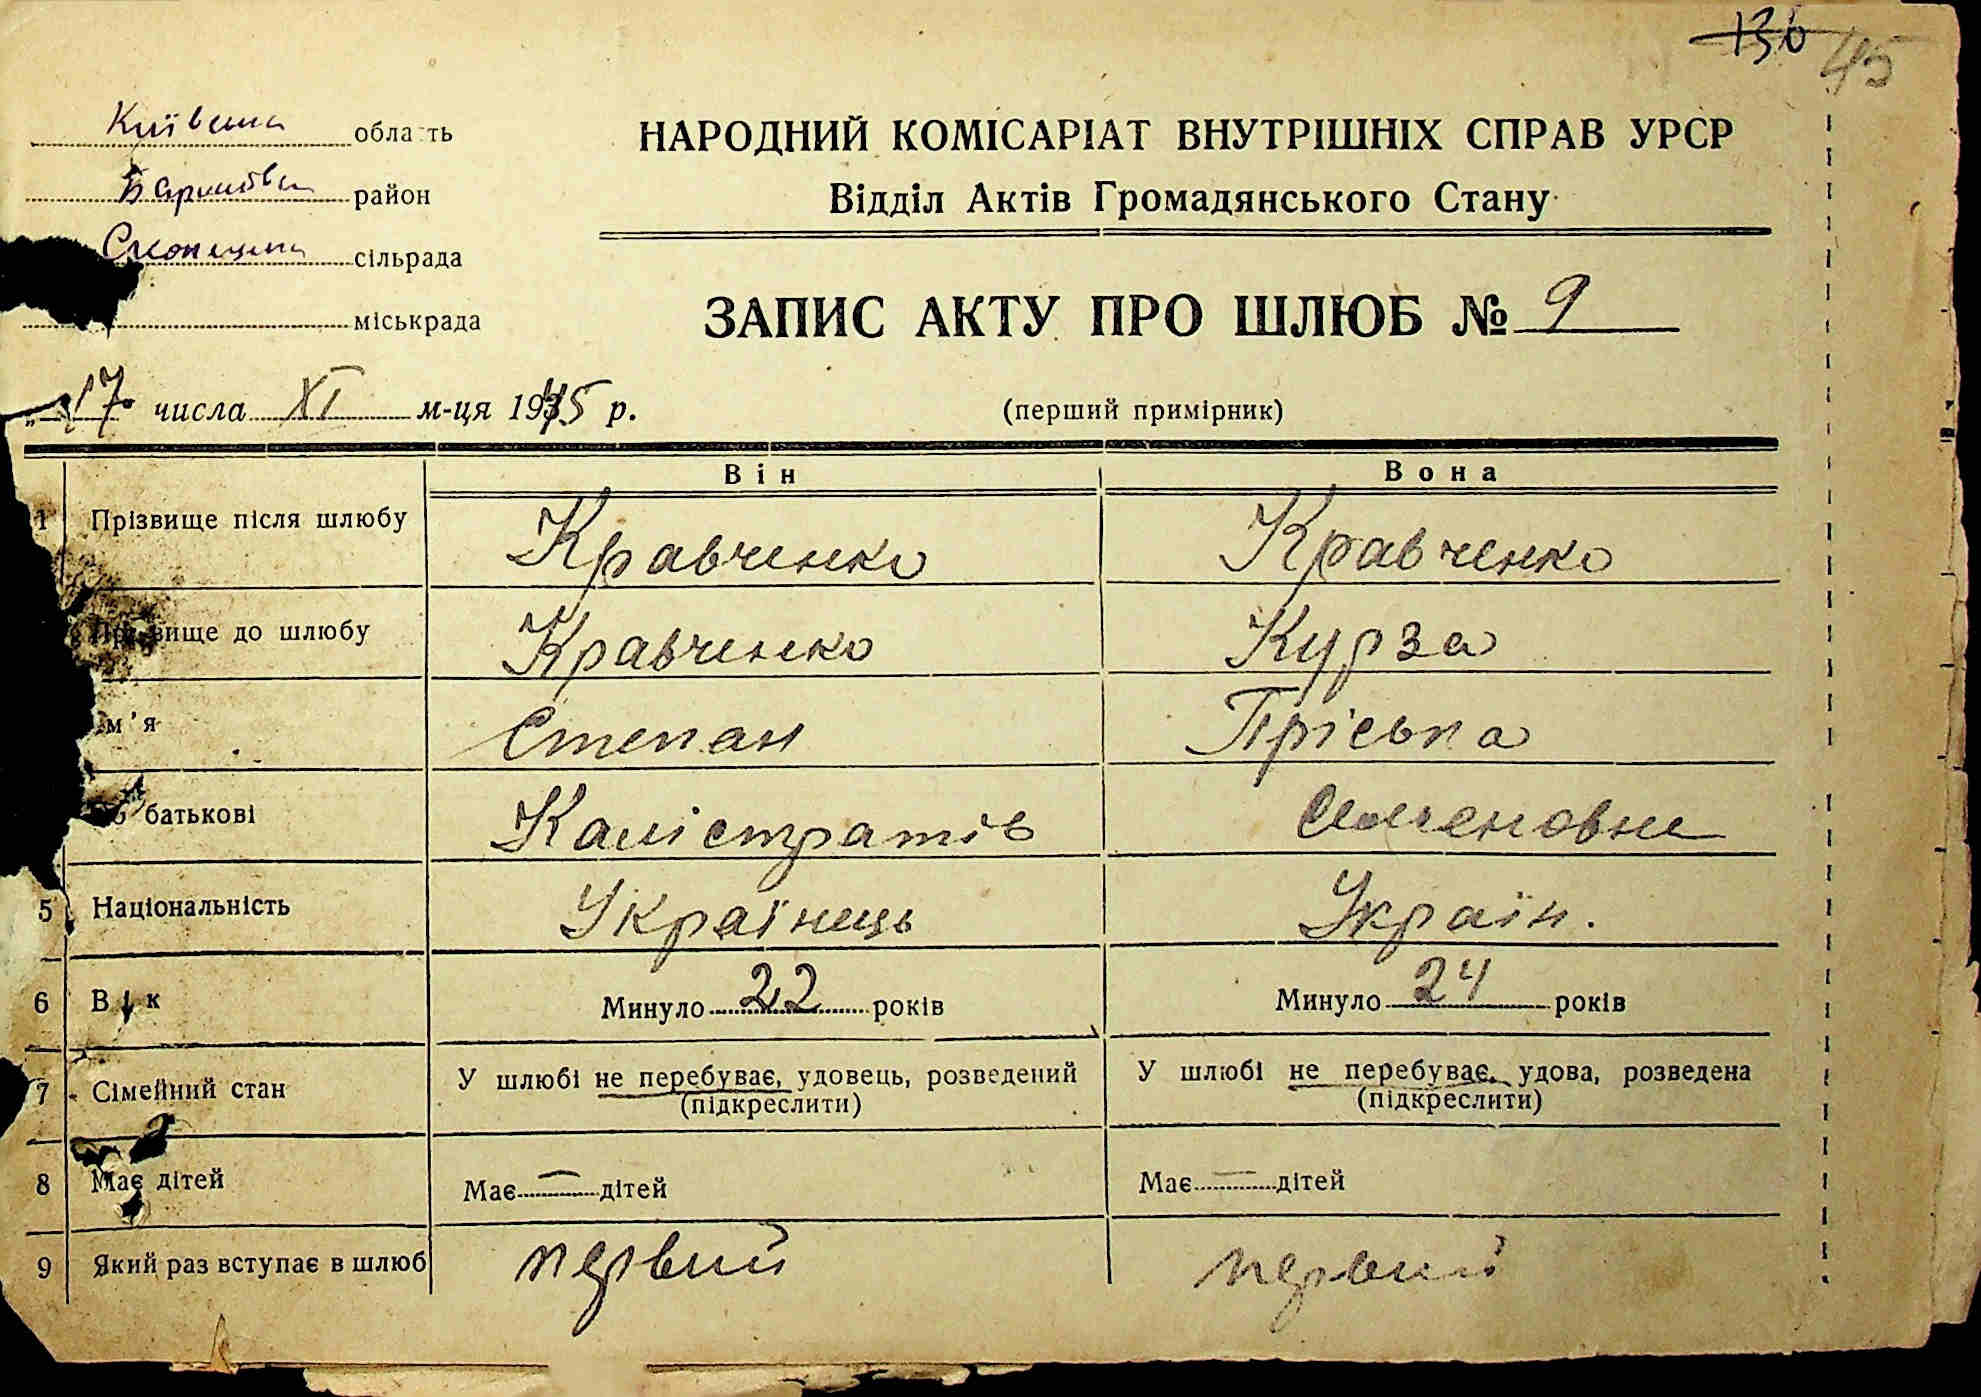 136 45
Київська область
район
сільрада
міськрада
НАРОДНИЙ КОМІСАРІАТ ВНУТРІШНІХ СПРАВ УРСР
Відділ Актів Громадянського Стану
ЗАПИС АКТУ ПРО ШЛЮБ № 9
„17" числа XI м-ця 1945 р.
(перший примірник)
Він Вона
1 Прізвище після шлюбу Кравченко Кравченко
Прізвище до шлюбу Кравченко Курза
Ім'я Степан Пріська
По батькові Калістратів Семеновна
5 Національність Українець Україн.
6 Вік Минуло 22 років Минуло 24 років
7 Сімейний стан У шлюбі не перебуває, удовець, розведений (підкреслити) У шлюбі не перебуває, удова, розведена (підкреслити)
8 Має дітей Має — дітей Має — дітей
9 Який раз вступає в шлюб первий первий